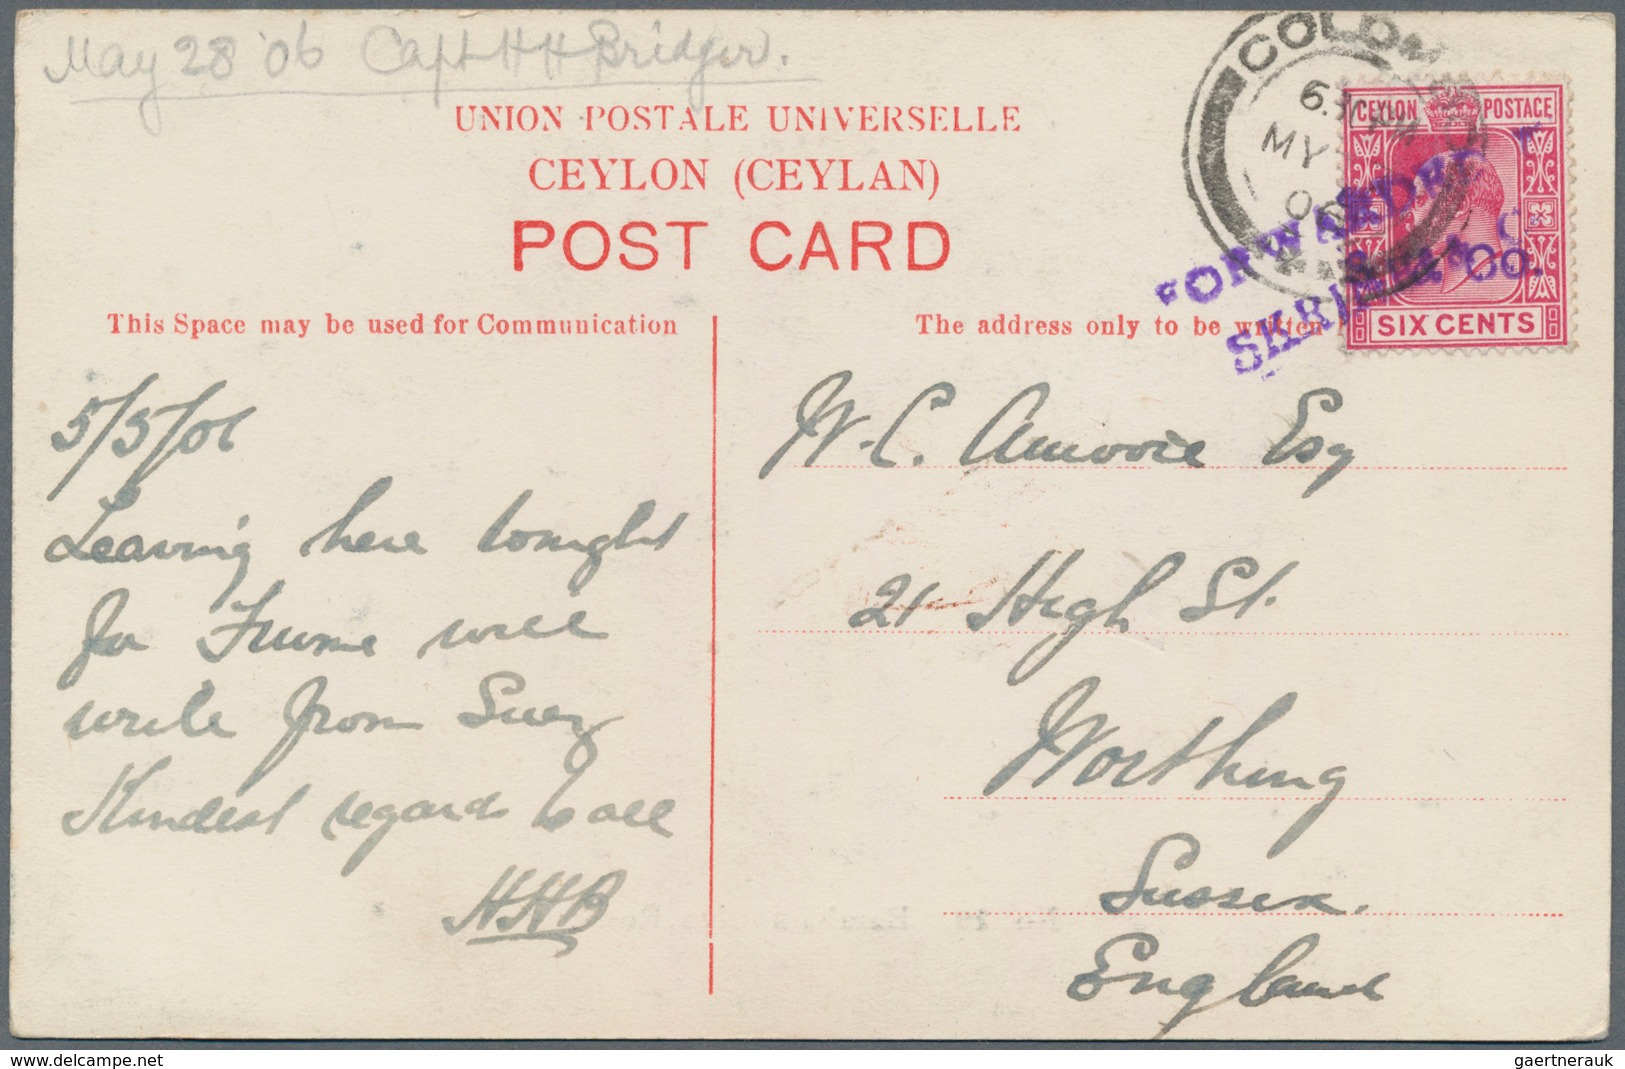 May 28 '06 Capt H H Bridger.
UNION POSTALE UNIVERSELLE
CEYLON (CEYLAN)
POST CARD
COLOM
MY
06
CEYLON POSTAGE
SIX CENTS
FORWARDED
SKRINE & CO.
This Space may be used for Communication
The address only to be written
5/5/06
Leaving here tonight
for Fiume will
write from Suez
Kindest regards to all
HHB
W. C. Amoore Esq
21 High St.
Worthing
Sussex.
England
www.delcampe.net
gaertnerauk